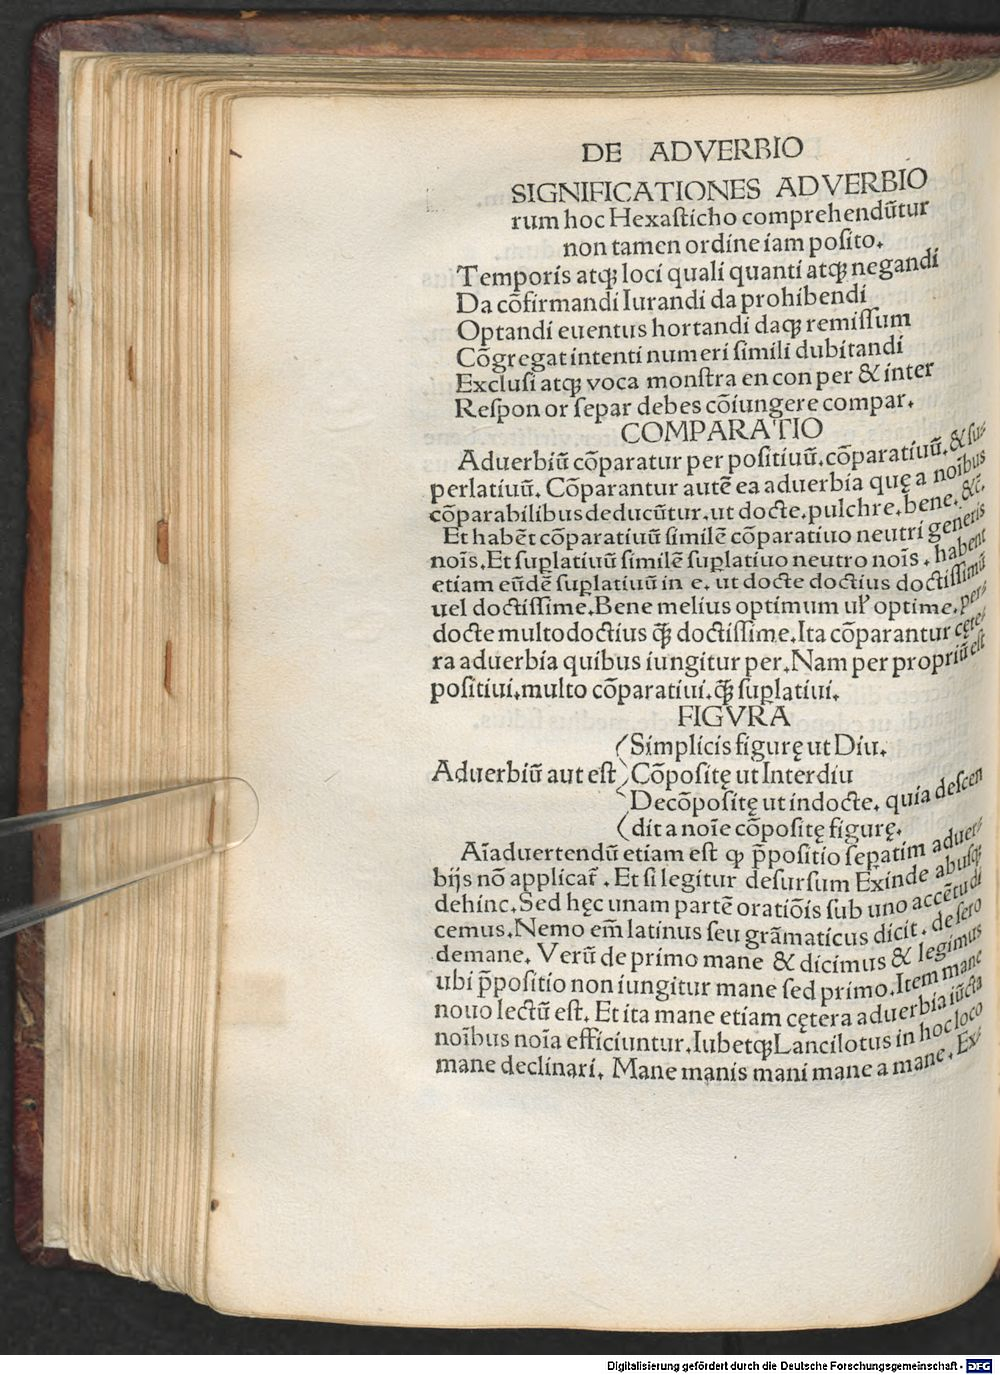 DE ADVERBIO
SIGNIFICATIONES ADVERBIO
rum hoc Hexasticho comprehendūtur
non tamen ordine iam posito.
Temporis atqꝫ loci quali quanti atqꝫ negandi
Da cōfirmandi Iurandi da prohibendi
Optandi euentus hortandi daqꝫ remissum
Cōgregat intenti numeri simili dubitandi
Exclusi atqꝫ voca monstra en con per & inter
Respon or separ debes cōiungere compar.
COMPARATIO
Aduerbiū cōparatur per positiuū. cōparatiuū. & su⸗
perlatiuū. Cōparantur autē ea aduerbia quę a noībus
cōparabilibus deducūtur. ut docte. pulchre. bene. &c̄.
Et habēt cōparatiuū similē cōparatiuo neutri generis
noīs. Et suꝑlatiuū similē suꝑlatiuo neutro noīs. habent
etiam eūdē suꝑlatiuū in e. ut docte doctius doctissimū
uel doctissime. Bene melius optimum uꝉ optime. per⸗
docte multo doctius qꝫ̄ doctissime. Ita cōparantur cęte⸗
ra aduerbia quibus iungitur per. Nam per propriū est
positiui. multo cōparatiui. qꝫ̄ suꝑlatiui.
FIGVRA
Simplicis figurę ut Diu.
Aduerbiū aut est Cōpositę ut Interdiu
Decōpositę ut indocte. quia descen
dit a noīe cōpositę figurę.
Aīaduertendū etiam est ꝙ p̄positio sepatim aduer⸗
bijs nō applicat̄. Et si legitur desursum Exinde abusqꝫ
dehinc. Sed hęc unam partē oratiōis sub uno accētu di
cemus. Nemo em̄ latinus seu grāmaticus dicit. de sero
demane. Verū de primo mane & dicimus & legimus
ubi p̄positio non iungitur mane sed primo. Item mane
nouo lectū est. Et ita mane etiam cętera aduerbia iūcta
noībus noīa efficiuntur. Iubetqꝫ Lancilotus in hoc loco
mane declinari. Mane manis mani mane a mane. Ex⸗
Digitalisierung gefördert durch die Deutsche Forschungsgemeinschaft - DFG